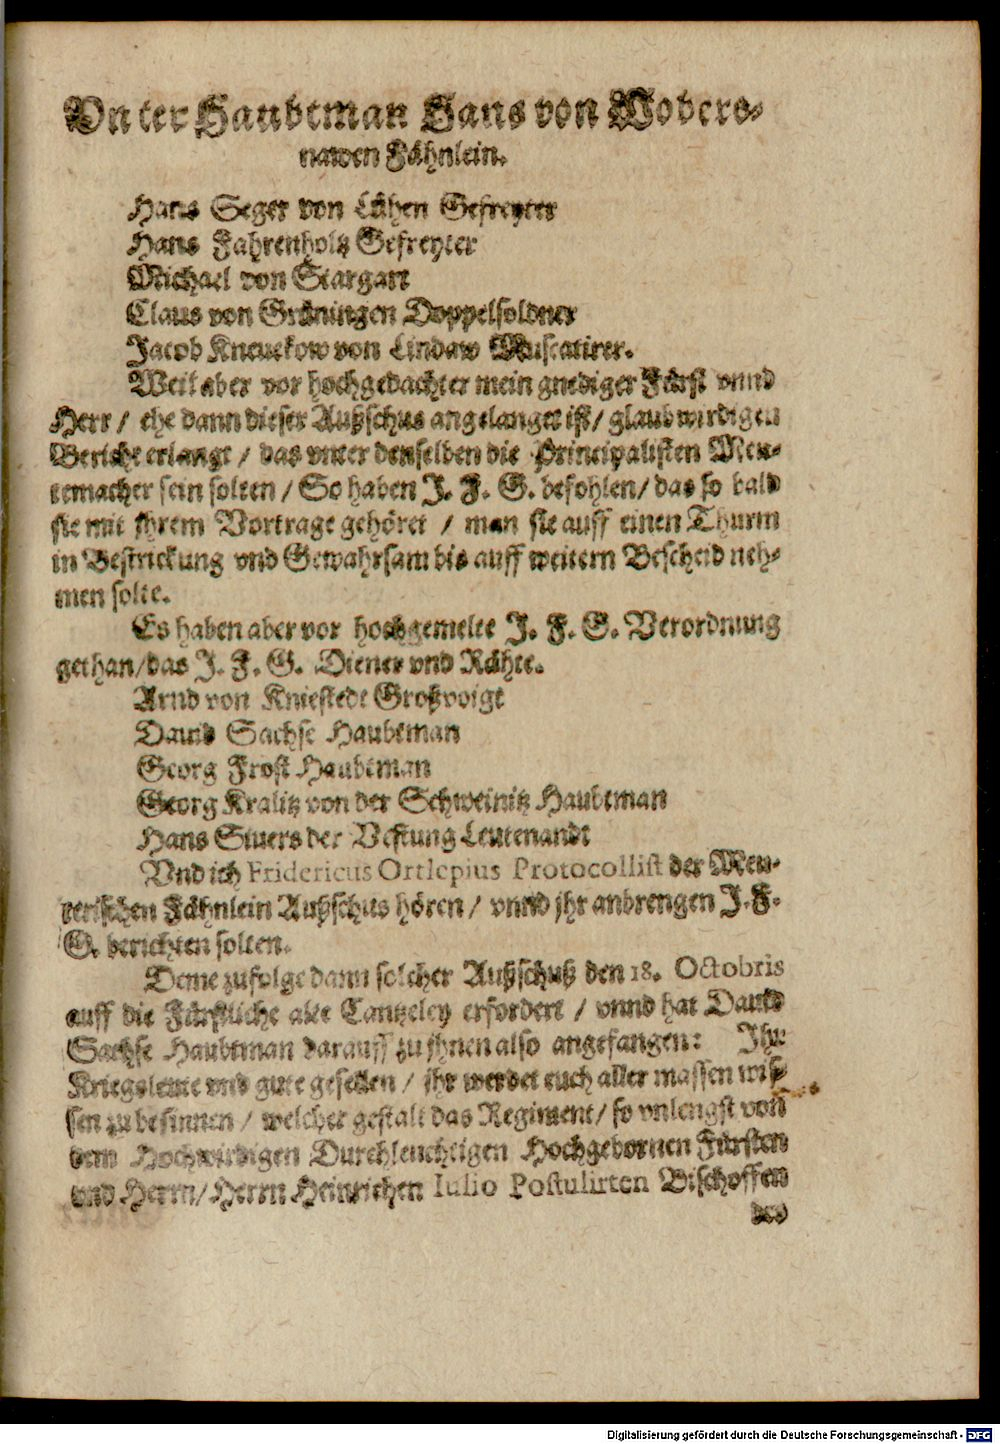 Vnter Haubtman Hans von Wobers-
nawen Fähnlein.
Hans Seger von Lühen Gefreyter
Hans Fahrenholtz Gefreyter
Michael von Stargart
Claus von Grüningen Doppelsoldner
Jacob Kneuekow von Lindaw Muscatirer.
Weil aber vor hochgedachter mein gnediger Fürst vnnd
Herr / ehe dann dieser Außschus angelanget ist / glaubwirdigen
Bericht erlangt / das vnter denselben die Principalisten Meu-
temacher sein solten / So haben J. F. G. befohlen / das so bald
sie mit jhrem Vortrage gehöret / man sie auff einen Thurm
in Bestrickung vnd Gewahrsam bis auff weitern Bescheid neh-
men solte.
Es haben aber vor hochgemelte J. F. G. Verordnung
gethan / das J. F. G. Diener vnd Rähte.
Arnd von Kniestedt Großvoigt
Dauid Sachse Haubtman
Georg Frost Haubtman
Georg Kralitz von der Schweinitz Haubtman
Hans Siuers der Vestung Leutenandt
Vnd ich Fridericus Ortlepius Protocollist der Meu-
terischen Fähnlein Außschus hören / vnnd jhr anbrengen J. F.
G. berichten solten.
Deme zufolge dann solcher Außschuß den 18. Octobris
auff die Fürstliche alte Cantzeley erfordert / vnnd hat Dauid
Sachse Haubtman darauff zu jhnen also angefangen: Jhr
Kriegsleute vnd gute gesellen / jhr werdet euch aller massen wis-
sen zu besinnen / welcher gestalt das Regiment / so vnlengst von
dem Hochwirdigen Durchleuchtigen Hochgebornen Fürsten
vnd Herrn / Herrn Heinrichen Iulio Postulirten Bischoffen
des
Digitalisierung gefördert durch die Deutsche Forschungsgemeinschaft - DFG